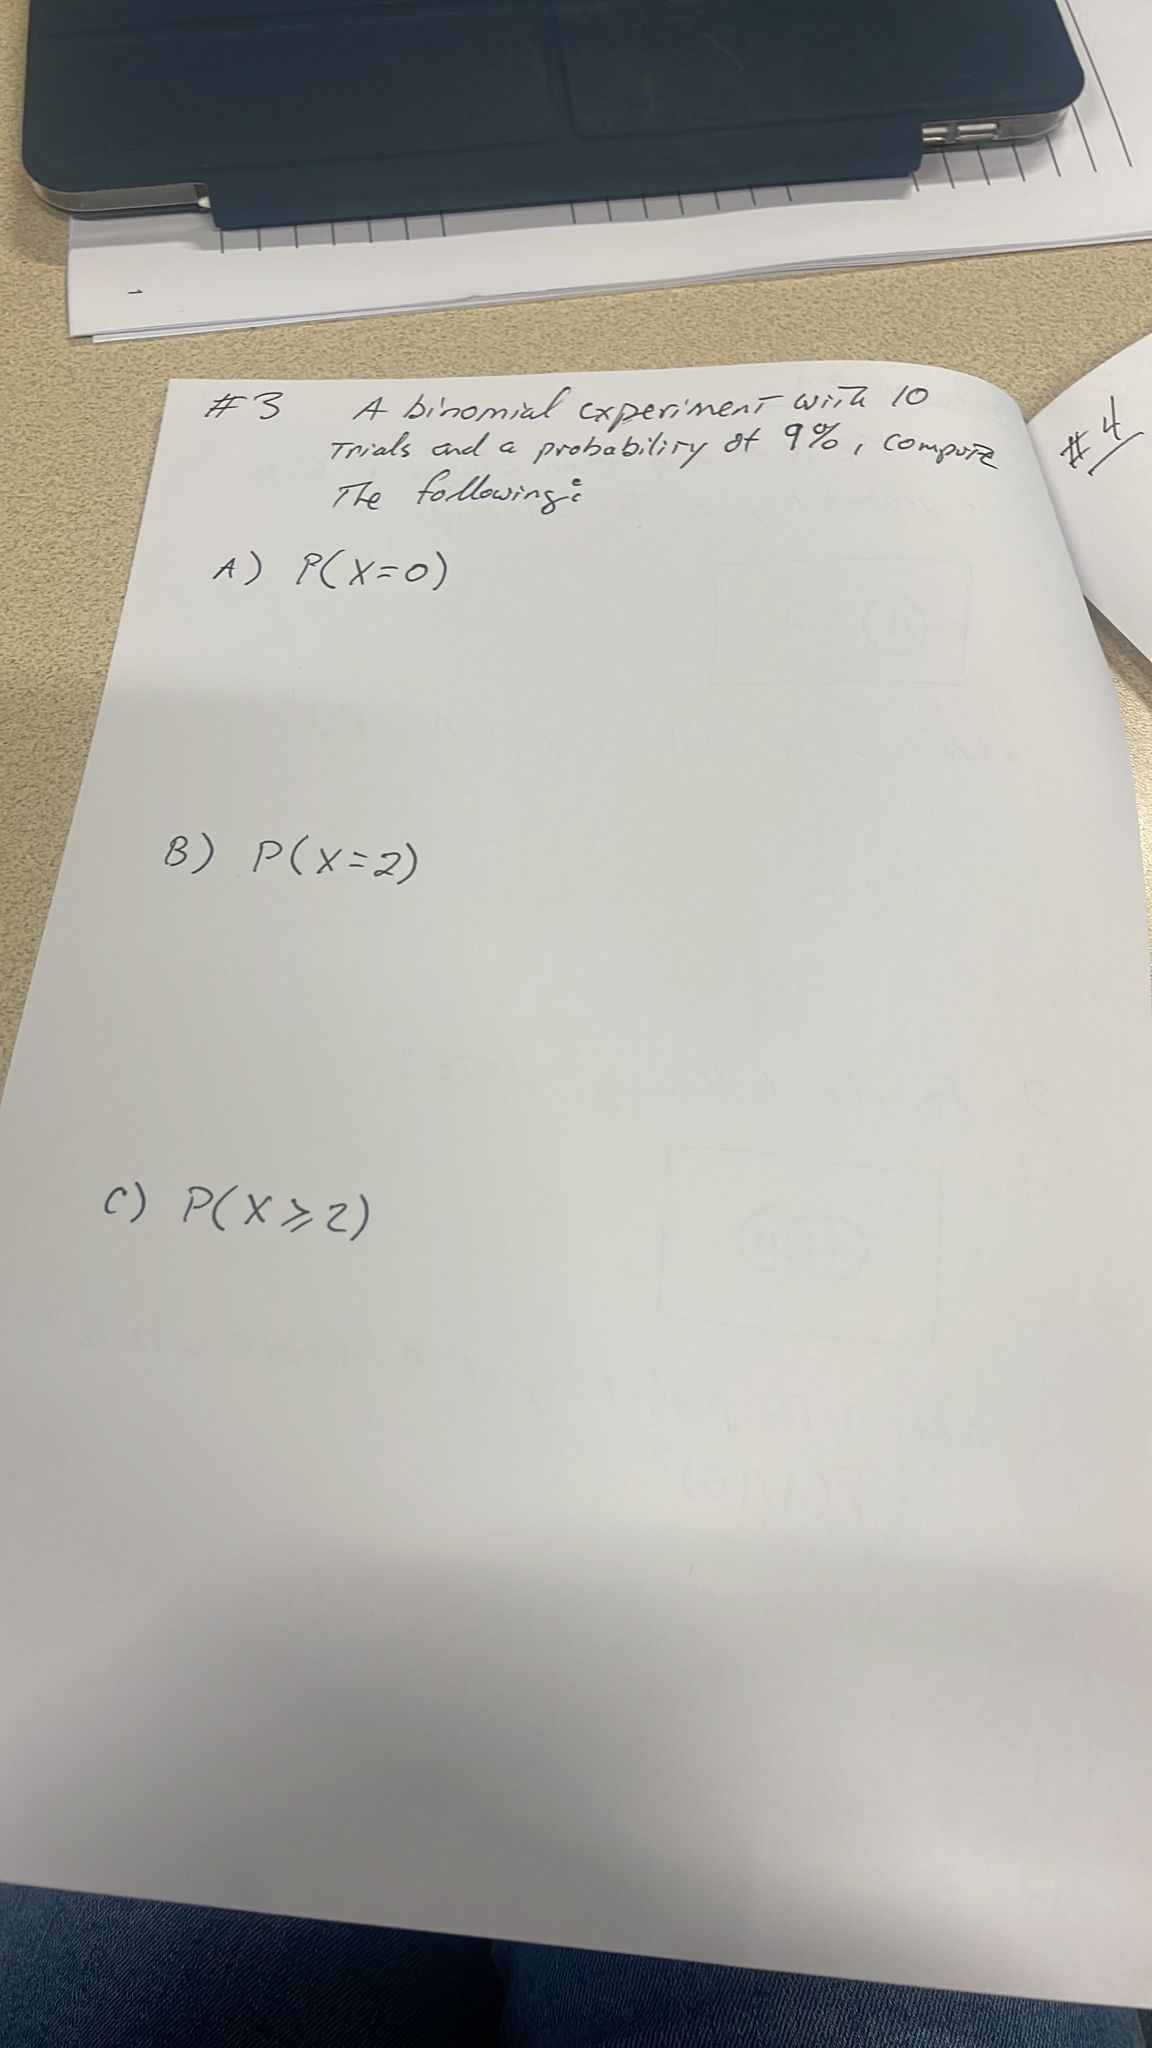 #3 A binomial experiment with 10
Trials and a probability of 9%, compute
The following:
A) P(X=0)
B) P(X=2)
C) P(X⩾2)
#4
1